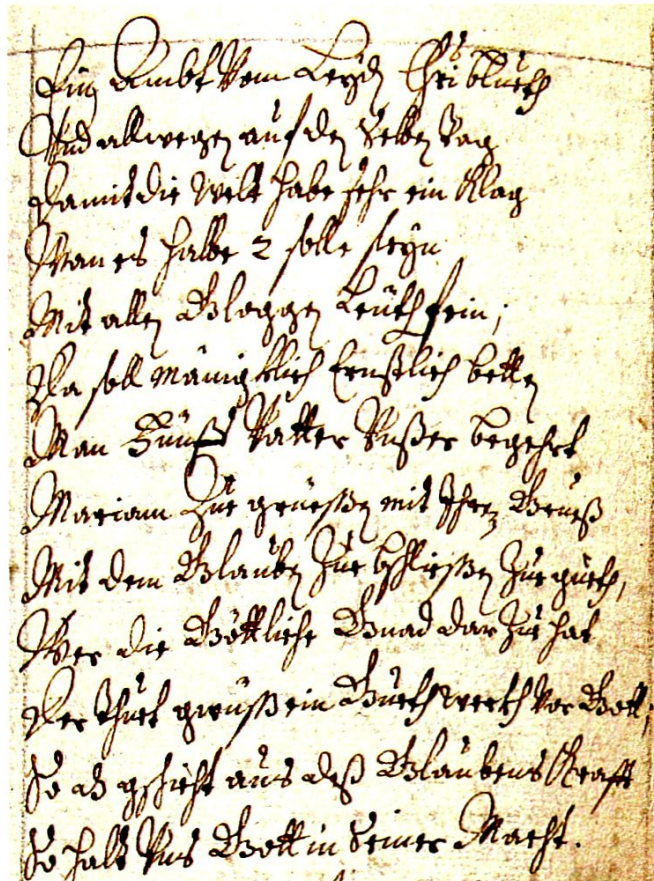 Ein Ambt Vom Leyd Chri blueth
Vnd allwegen auf den selben Tag
Damit die Welt habe sehr ein Klag
Wan es halbe 2 solle seyn
Mit allen Gloggen Leüth fein;
Da soll mänigklich Ernstlich betten
Man Fünff Vatter Vnßer begehrt
Mariam Zue grüeßen mit Ihrem Grueß
Mit dem Glauben Zue bschließen Zue gueth,
Wer die Göttliche Gnad dar Zue hat
Der Thuet gwüß ein Gueth werckh Vor Gott;
So es gschicht aus deß Glaubens Krafft
So halt Vns Gott in Seiner Macht.